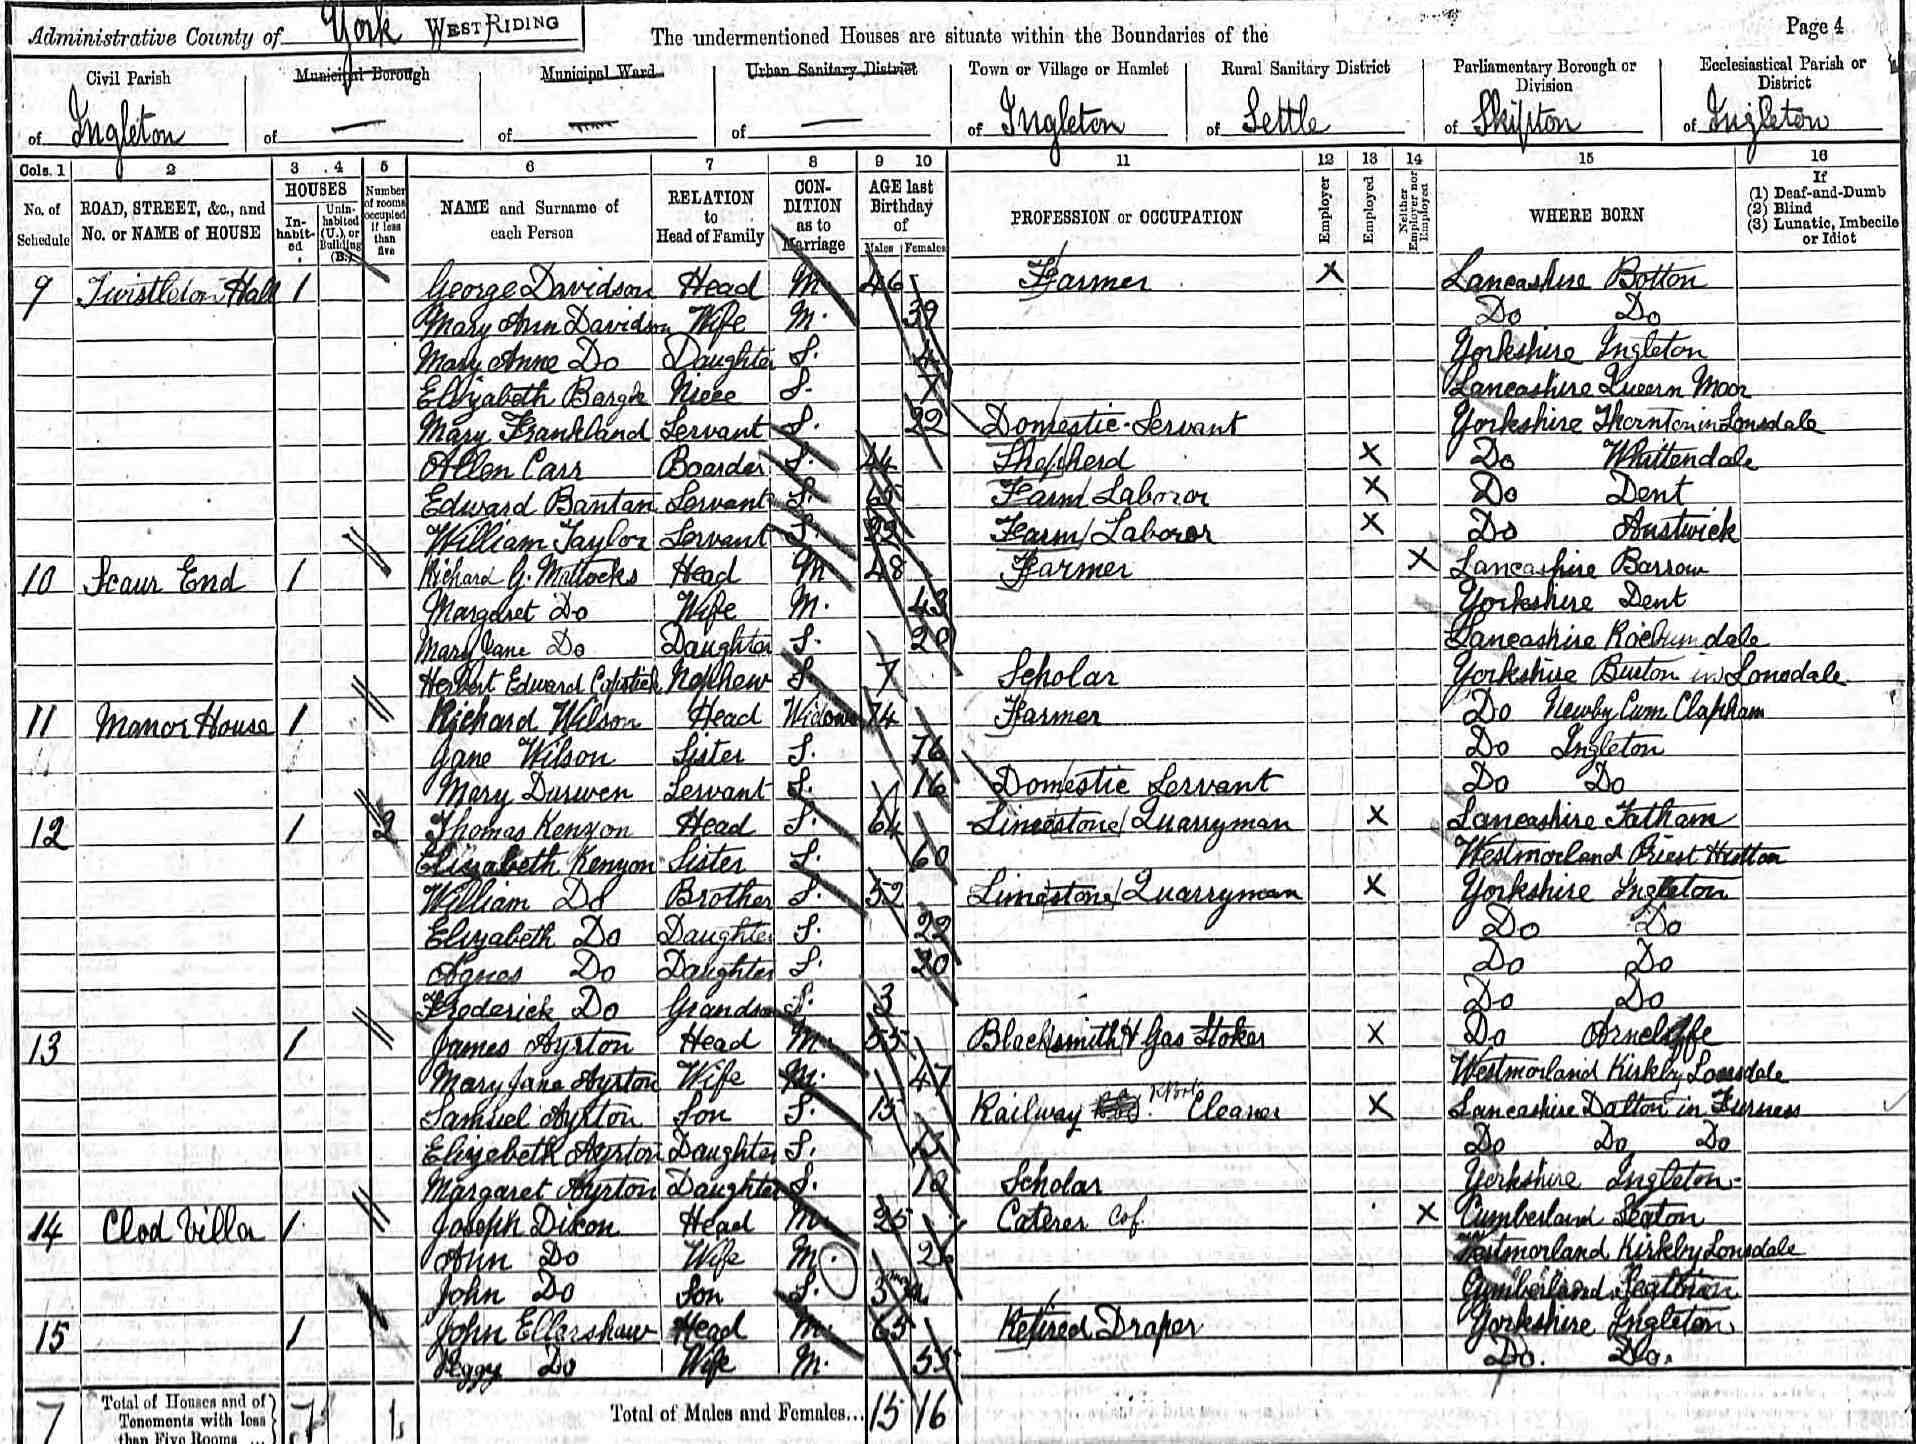 Administrative County of York WEST RIDING
The undermentioned Houses are situate within the Boundaries of the
Page 4
Civil Parish of Ingleton
Municipal Borough of —
Municipal Ward of —
Urban Sanitary District of —
Town or Village or Hamlet of Ingleton
Rural Sanitary District of Settle
Parliamentary Borough or Division of Skipton
Ecclesiastical Parish or District of Ingleton
Cols. 1 2 3 4 5 6 7 8 9 10 11 12 13 14 15 16
No. of Schedule
ROAD, STREET, &c., and No. or NAME of HOUSE
HOUSES
Inhabited
Uninhabited (U.), or Building (B.)
Number of rooms occupied if less than five
NAME and Surname of each Person
RELATION to Head of Family
CONDITION as to Marriage
AGE last Birthday of
Males Females
PROFESSION or OCCUPATION
Employer
Employed
Neither Employer nor Employed
WHERE BORN
If
(1) Deaf-and-Dumb
(2) Blind
(3) Lunatic, Imbecile or Idiot
9 Twistleton Hall 1 George Davidson Head M 46 Farmer X Lancashire Botton
Mary Ann Davidson Wife M. 39 Do Do
Mary Anne Do Daughter S. 4 Yorkshire Ingleton
Elizabeth Niece S. 7 Lancashire Queern Moor
Mary Frankland Servant S. 22 Domestic Servant Yorkshire Thornton in Lonsdale
Allen Carr Boarder S. 44 Shepherd X Do Whittendale
Edward Bantan Servant S. 65 Farm Laboror X Do Dent
William Taylor Servant S. 22 Farm Laboror X Do Austwick
10 Scaur End 1 Richard G. Mattocks Head M 48 Farmer X Lancashire Barrow
Margaret Do Wife M. 43 Yorkshire Dent
Mary Jane Do Daughter S. 20 Lancashire Roeburndale
Herbert Edward Capstick Nephew S 7 Scholar Yorkshire Burton in Lonsdale
11 Manor House 1 Richard Wilson Head Widower 74 Farmer Do Newby Cum Clapham
Jane Wilson Sister S. 76 Do Ingleton
Mary Durwen Servant S. 16 Domestic Servant Do Do
12 1 2 Thomas Kenyon Head S. 64 Limestone Quarryman X Lancashire Tatham
Elizabeth Kenyon Sister S. 60 Westmorland Priest Hutton
William Do Brother S. 52 Limestone Quarryman X Yorkshire Ingleton
Elizabeth Do Daughter S. 22 Do Do
Agnes Do Daughter S. 20 Do Do
Frederick Do Grandson S. 3 Do Do
13 1 James Ayrton Head M. 55 Blacksmith & Gas Stoker X Do Arncliffe
Mary Jane Ayrton Wife M. 47 Westmorland Kirkby Lonsdale
Samuel Ayrton Son S. 15 Railway Cleaner X Lancashire Dalton in Furness
Elizabeth Ayrton Daughter S. 13 Do Do Do
Margaret Ayrton Daughter S. 12 Scholar Yorkshire Ingleton
14 Clod Villa 1 Joseph Dixon Head M. 25 Caterer Cof. X Cumberland Seaton
Ann Do Wife M. 26 Westmorland Kirkby Lonsdale
John Do Son S. 3 Cumberland Seaton
15 1 John Ellershaw Head M. 65 Retired Draper Yorkshire Ingleton
Peggy Do Wife M. 55 Do. Do.
7 Total of Houses and of Tenements with less than Five Rooms ... 7 1 Total of Males and Females... 15 16